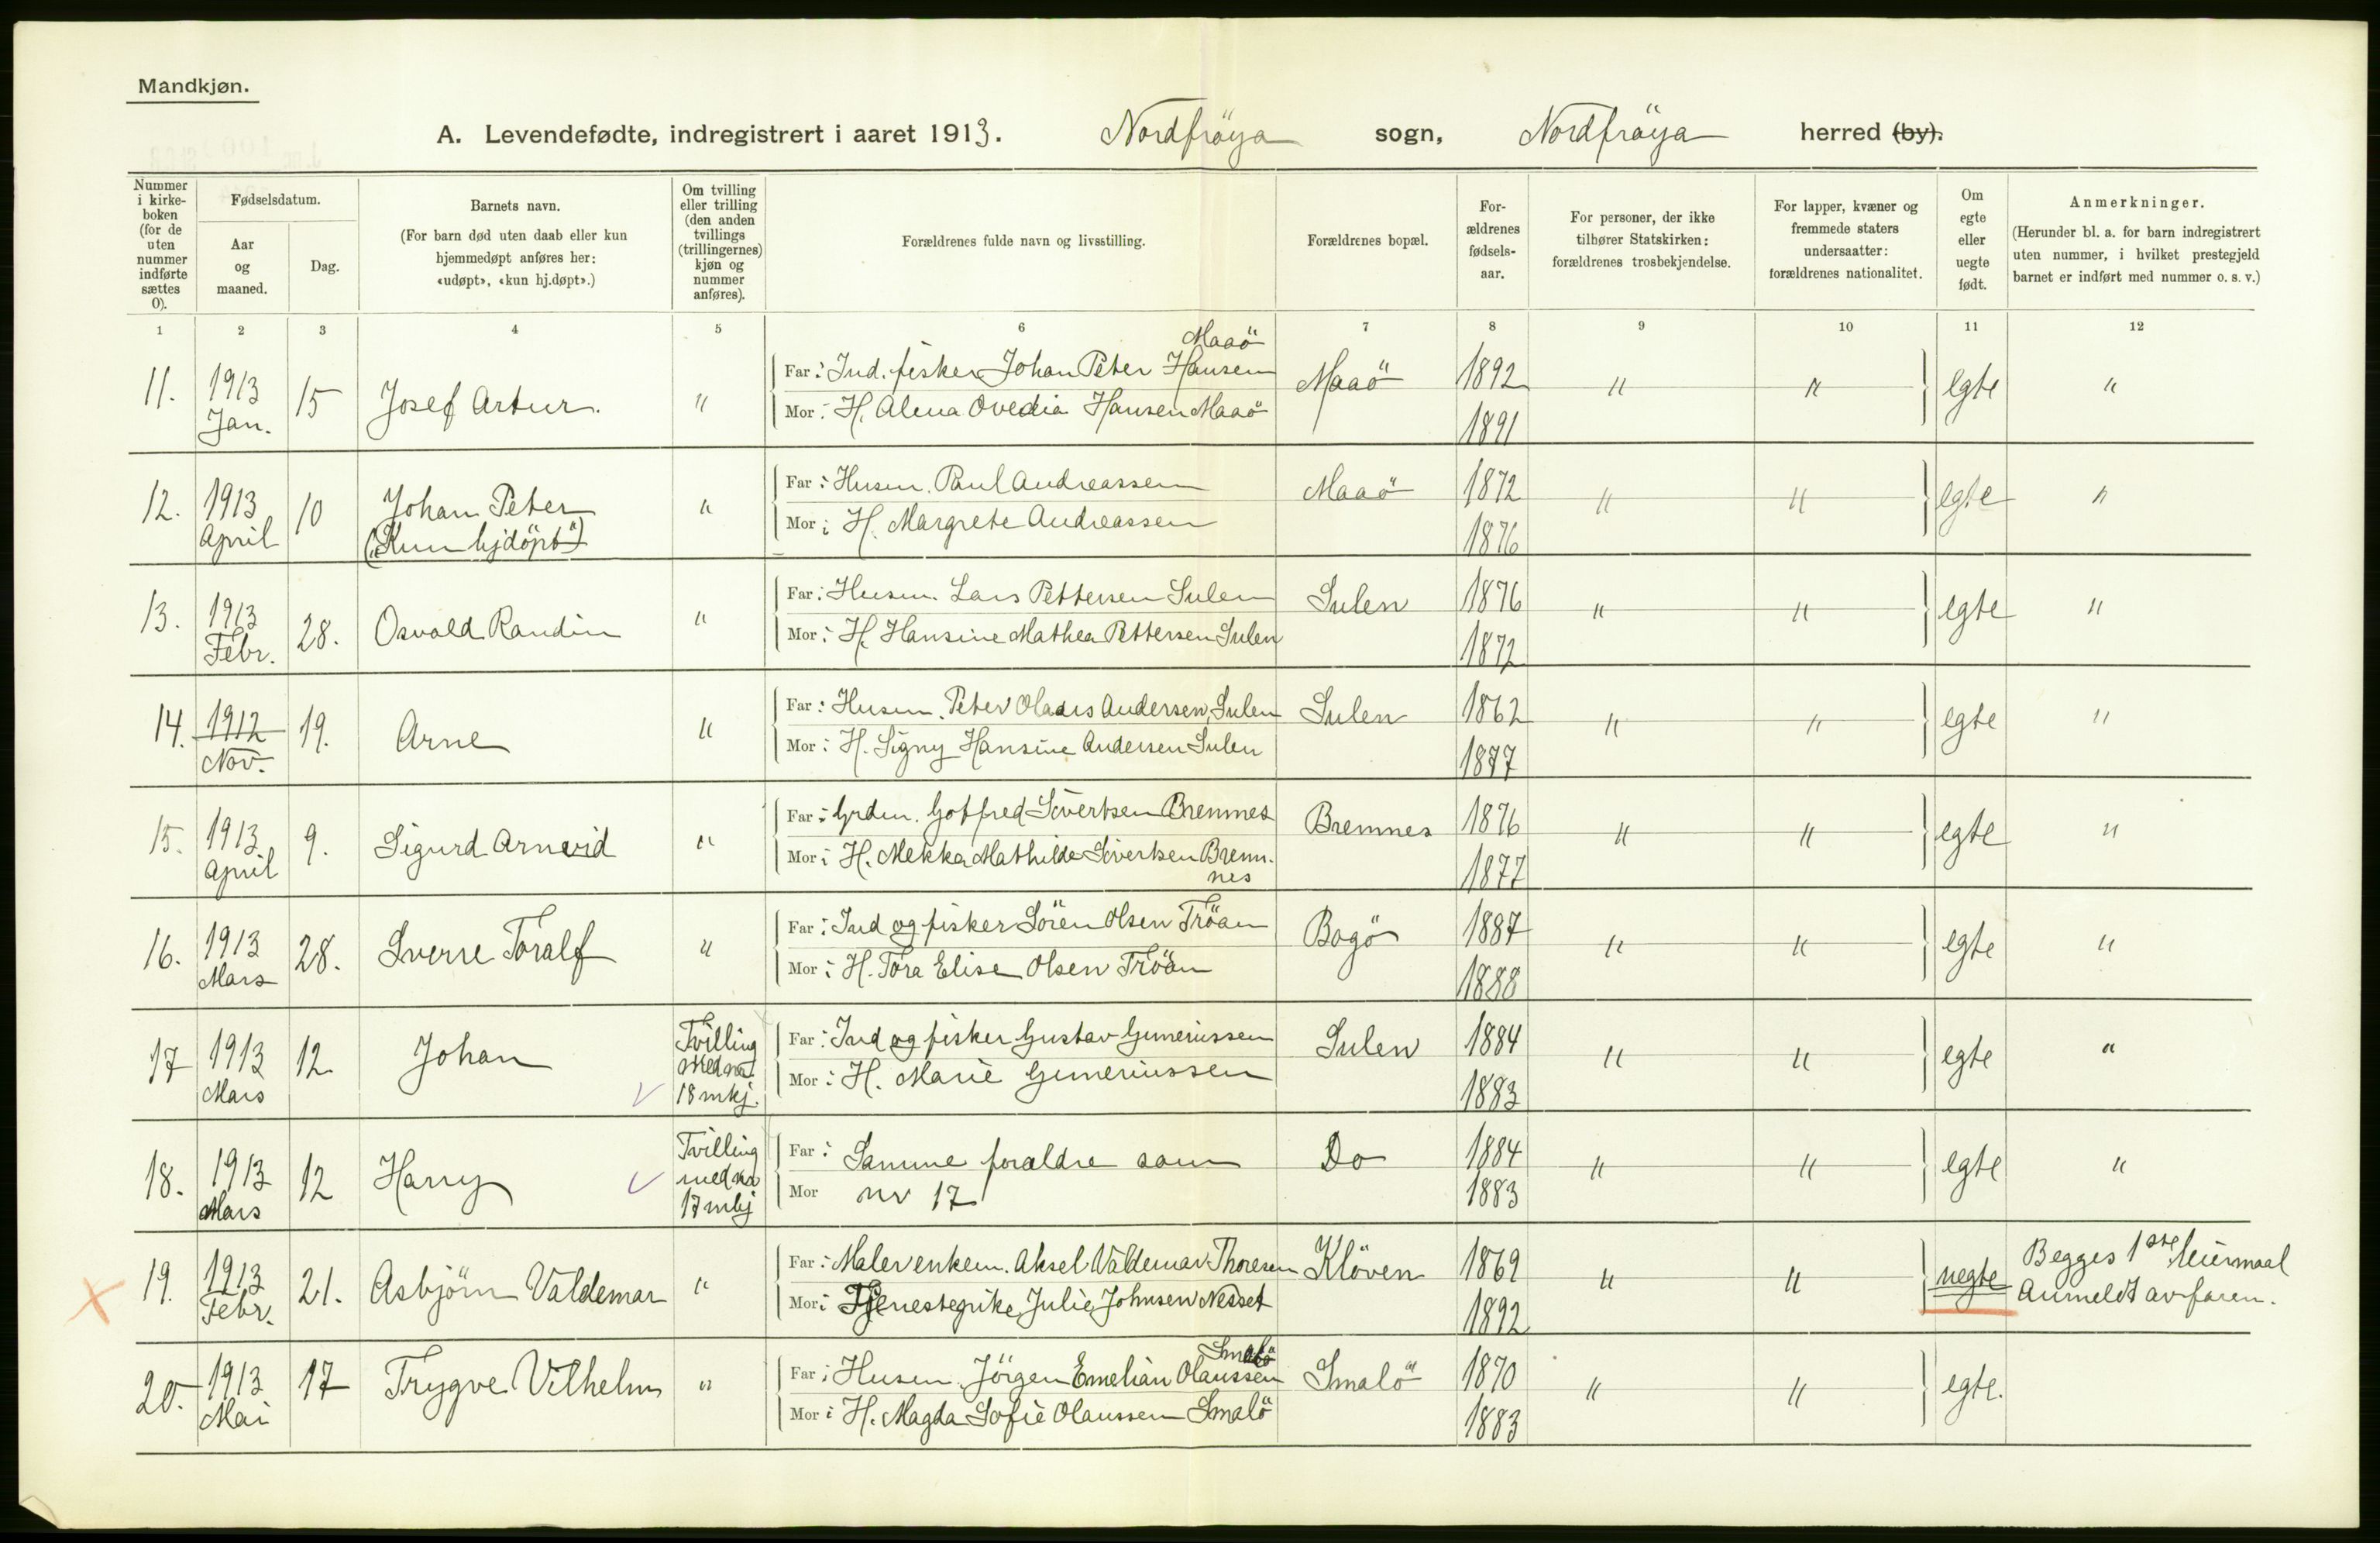 Mandkjøn.
A. Levendefødte, indregistrert i aaret 1913. Nordfröya sogn, Nordfröya herred (by).
Nummer i kirke-boken (for de uten nummer indførte sættes 0).
Fødselsdatum.
Aar og maaned.
Dag.
Barnets navn.
(For barn død uten daab eller kun hjemmedøpt anføres her: «udøpt», «kun hj.døpt».)
Om tvilling eller trilling (den anden tvillings (trillingernes) kjøn og nummer anføres).
Forældrenes fulde navn og livsstilling.
Forældrenes bopæl.
For-ældrenes fødsels-aar.
For personer, der ikke tilhører Statskirken: forældrenes trosbekjendelse.
For lapper, kvæner og fremmede staters undersaatter: forældrenes nationalitet.
Om egte eller uegte født.
Anmerkninger.
(Herunder bl. a. for barn indregistrert uten nummer, i hvilket prestegjeld barnet er indført med nummer o. s. v.)
1 2 3 4 5 6 7 8 9 10 11 12
11. 1913 Jan. 15 Josef Artur. " Far: Ind. fisker Johan Peter Hansen Maaö Maaö 1892 " " egte "
Mor: H. Alena Ovedia Hansen Maaö 1891
12. 1913 April 10 Johan Peter ("Kun hjdöpt") " Far: Husm. Paul Andreassen Maaö 1872 " " egte "
Mor: H. Margrete Andreassen 1876
13. 1913 Febr. 28. Osvald Randin " Far: Husm. Lars Pettersen Sulen Sulen 1876 " " egte "
Mor: H. Hansine Mathea Pettersen Sulen 1872
14. 1912 Nov. 19. Arne " Far: Husm. Peter Olaus Andersen, Sulen Sulen 1862 " " egte "
Mor: H. Signy Hansine Andersen Sulen 1877
15. 1913 April 9. Sigurd Arnvid " Far: Grdm. Gotfred Sivertsen Bremnes Bremnes 1876 " " egte "
Mor: H. Mekka Mathilde Sivertsen Bremnes 1877
16. 1913 Mars 28. Sverre Toralf " Far: Ind og fisker Sören Olsen Tröan Bogö 1887 " " egte "
Mor: H. Tora Elise Olsen Tröan 1888
17 1913 Mars 12. Johan Tvilling med nr 18 mkj. Far: Ind og fisker Gustav Gumeriussen Sulen 1884 " " egte "
Mor: H. Marie Gumeriussen 1883
18. 1913 Mars 12 Harry Tvilling med nr 17 mkj Far: Samme foraldre som Do 1884 " " egte "
Mor nr 17 1883
19. 1913 Febr. 21. Asbjörn Valdemar " Far: Maler enkem. Aksel Valdemar Thoresen Klöven 1869 " " uegte Begges 1ste leiermaal
Mor: Tjenestepike Julie Johnsen Nesset 1892 Anmeldt av faren.
20. 1913 Mai 17 Trygve Vilhelm " Far: Husm. Jörgen Emelian Olaussen Smalö Smalö 1870 " " egte.
Mor: H. Magda Sofie Olaussen Smalö 1883